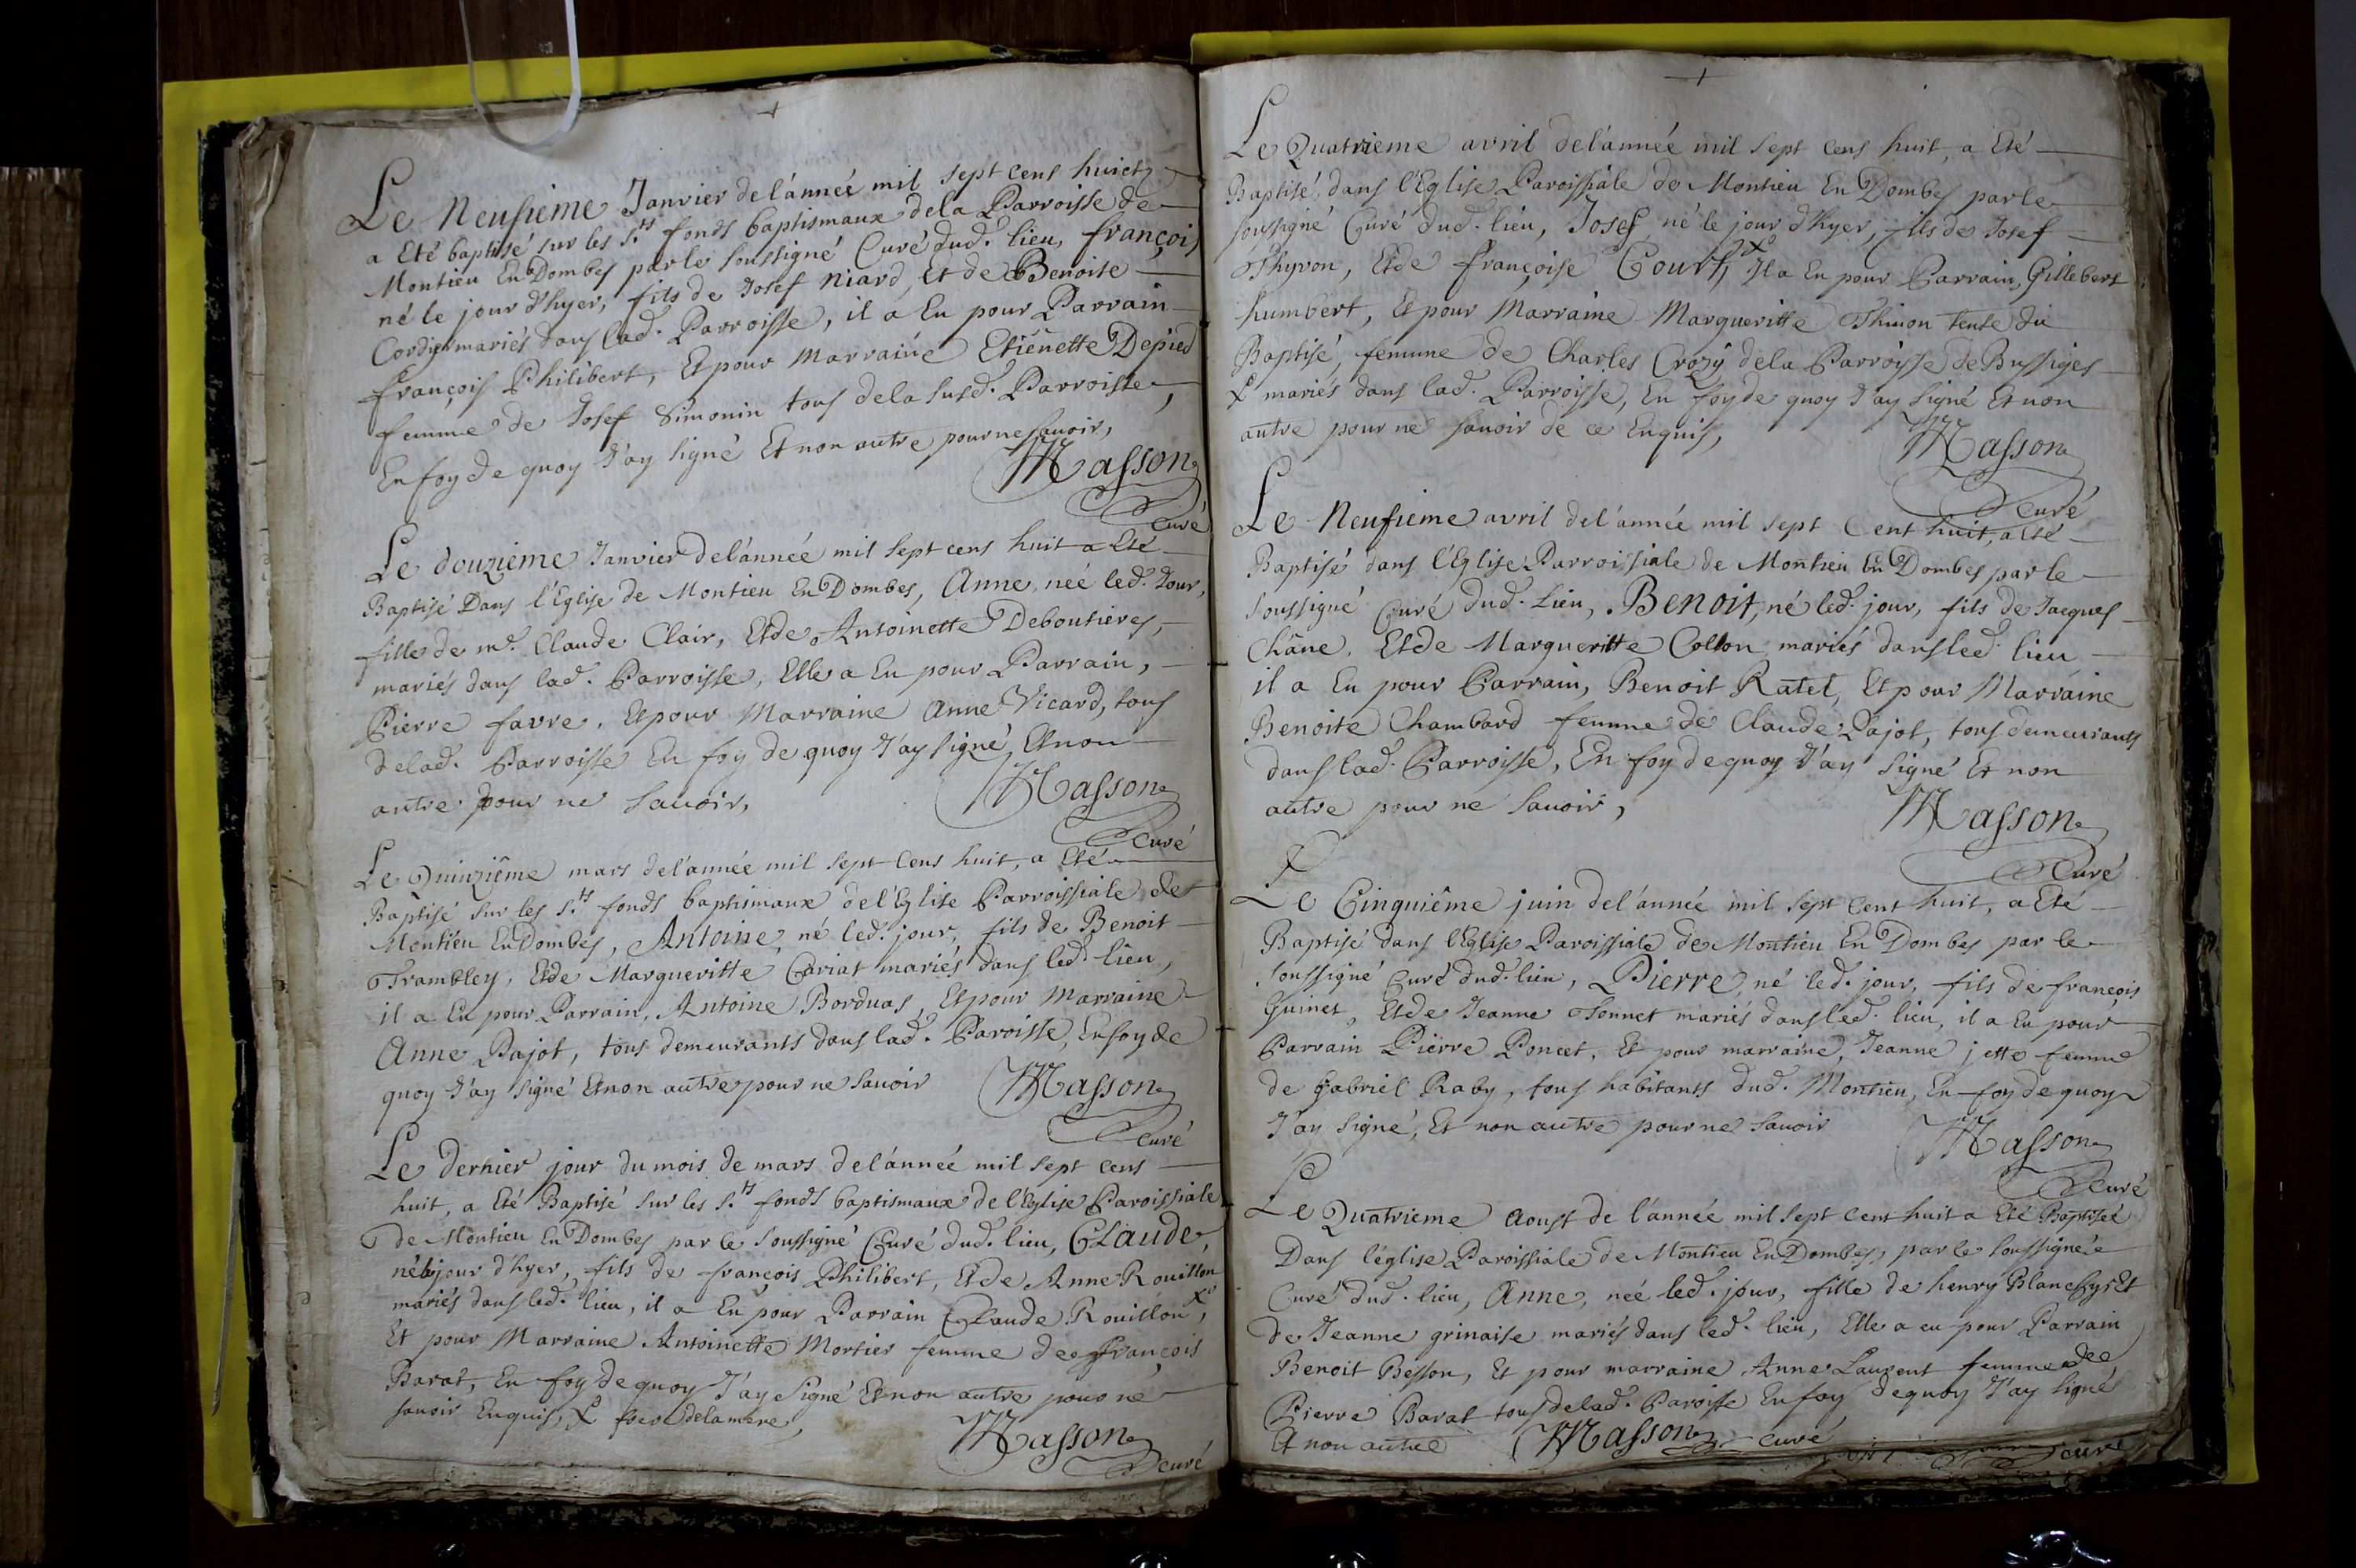 Le Neufieme Janvier de l'année mil sept cens huict
a Eté baptisé sur les S.ts fonds baptismaux de la Parroisse de
Montieu En Dombes par le soussigné Curé dud. lieu, françois
né le jour d'hyer, fils de Josef Niard, Et de Benoite
Cordier mariés dans lad. Parroisse, il a Eu pour Parrain
françois Philibert, Et pour Marraine Etiénette Depied
femme de Josef Simonin tous de la susd. Parroisse,
En foy de quoy J'ay signé Et non autre pour ne sauoir,
Masson
Curé
Le douzième Janvier de l'année mil sept cens huit a Eté
Baptisé Dans l'Eglise de Montieu En Dombes, Anne, neé led. Jour,
fille de m.e Claude Clair, Et de Antoinette Deboutieres,
mariés dans lad. Parroisse, Elle a Eu pour Parrain,
Pierre favre, Et pour Marraine Anne Vicard, tous
de lad. Parroisse En foy de quoy J'ay signé, Et non
autre pour ne sauoir,
Masson
Curé
Le Quinziême mars de l'année mil sept cens huit, a Eté
Baptisé sur les S.ts fonds baptismaux de l'Eglise Parroissiale de
Montieu En Dombes, Antoine, né led. jour, fils de Benoit
Trambley, Et de Margueritte Cariat mariés dans led. lieu,
il a Eu pour Parrain, Antoine Borduas, Et pour Marraine
Anne Pajot, tous demeurants dans lad. Paroisse, En foy de
quoy J'ay signé Et non autre pour ne sauoir
Masson
Curé
Le dernier jour du mois de mars de l'année mil sept cens
huit, a Eté Baptisé sur les S.ts fonds baptismaux de l'Eglise Paroissiale
de Montieu En Dombes par le soussigné Curé dud. lieu, Claude,
né le jour d'hyer, fils de françois Philibert, Et de Anne Rouillon
mariés dans led. lieu, il a Eu pour Parrain Claude Rouillon X,
Et pour Marraine Antoinette Mortier femme de françois
Barat, En foy de quoy J'ay signé Et non autre pour ne
sauoir Enquis, X frere de la mere,
Masson
Curé
Le Quatrieme avril de l'année mil sept cens huit, a Eté
Baptisé, dans l'Eglise Paroissiale de Montieu En Dombes par le
soussigné Curé dud. lieu, Josef né le jour d'hyer, fils de Josef
Thyvon, Et de françoise Court, X Il a Eu pour Parrain, Gillebert
humbert, Et pour Marraine Margueritte Thivon tente du
Baptisé, femme de Charles Crozy de la Parroisse de Bussiges
X mariés dans lad. Parroisse, En foy de quoy J'ay signé Et non
autre pour ne sauoir de ce Enquis,
Masson
Curé
Le Neufieme avril de l'année mil sept Cent huit, a Eté
Baptisé dans l'Eglise Parroissiale de Montieu En Dombes par le
soussigné Curé dud. Lieu, Benoit, né led. jour, fils de Jacques
Châne, Et de Margueritte Collon mariés dans led. lieu
il a Eu pour Parrain, Benoit Ratet, Et pour Marraine
Benoite Chambard femme de Claude Pajot, tous demeurants
dans lad. Parroisse, En foy de quoy J'ay signé Et non
autre pour ne sauoir,
Masson
Curé
Le Cinquiême juin de l'année mil sept Cent huit, a Eté
Baptisé dans l'Eglise Paroissiale de Montieu En Dombes par le
soussigné Curé dud. lieu, Pierre, né led. jour, fils de françois
Guinet, Et de Jeanne Tonnet mariés dans led. lieu, il a Eu pour
Parrain Pierre Poncet, Et pour marraine, Jeanne jette femme
de Gabriel Raby, tous habitants dud. Montieu, En foy de quoy
J'ay signé, Et non autre pour ne sauoir
Masson
Curé
Le Quatrieme Aoust de l'année mil sept cent huit a Eté Baptiseé
Dans l'église Paroissiale de Montieu En Dombes, par le soussigné
Curé dud. lieu, Anne, neé led. jour, fille de henry Blanc Et
de Jeanne grinaise mariés dans led. lieu, Elle a eu pour Parrain
Benoit Besson, Et pour marraine Anne Laurent femme de
Pierre Barat tous de lad. Paroisse En foy de quoy J'ay signé
Et non autre Masson curé
curé